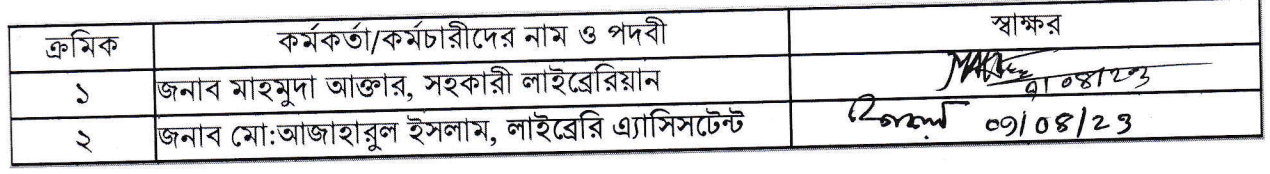 ক্রমিক কর্মকর্তা/কর্মচারীদের নাম ও পদবী স্বাক্ষর
১ জনাব মাহমুদা আক্তার, সহকারী লাইব্রেরিয়ান 08/23
২ জনাব মো:আজাহারুল ইসলাম, লাইব্রেরি এ্যাসিসটেন্ট 09/08/23